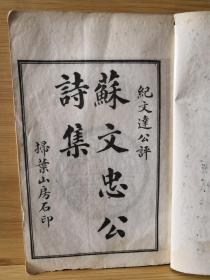 紀文達公評
蘇文忠公
詩集
掃葉山房石印